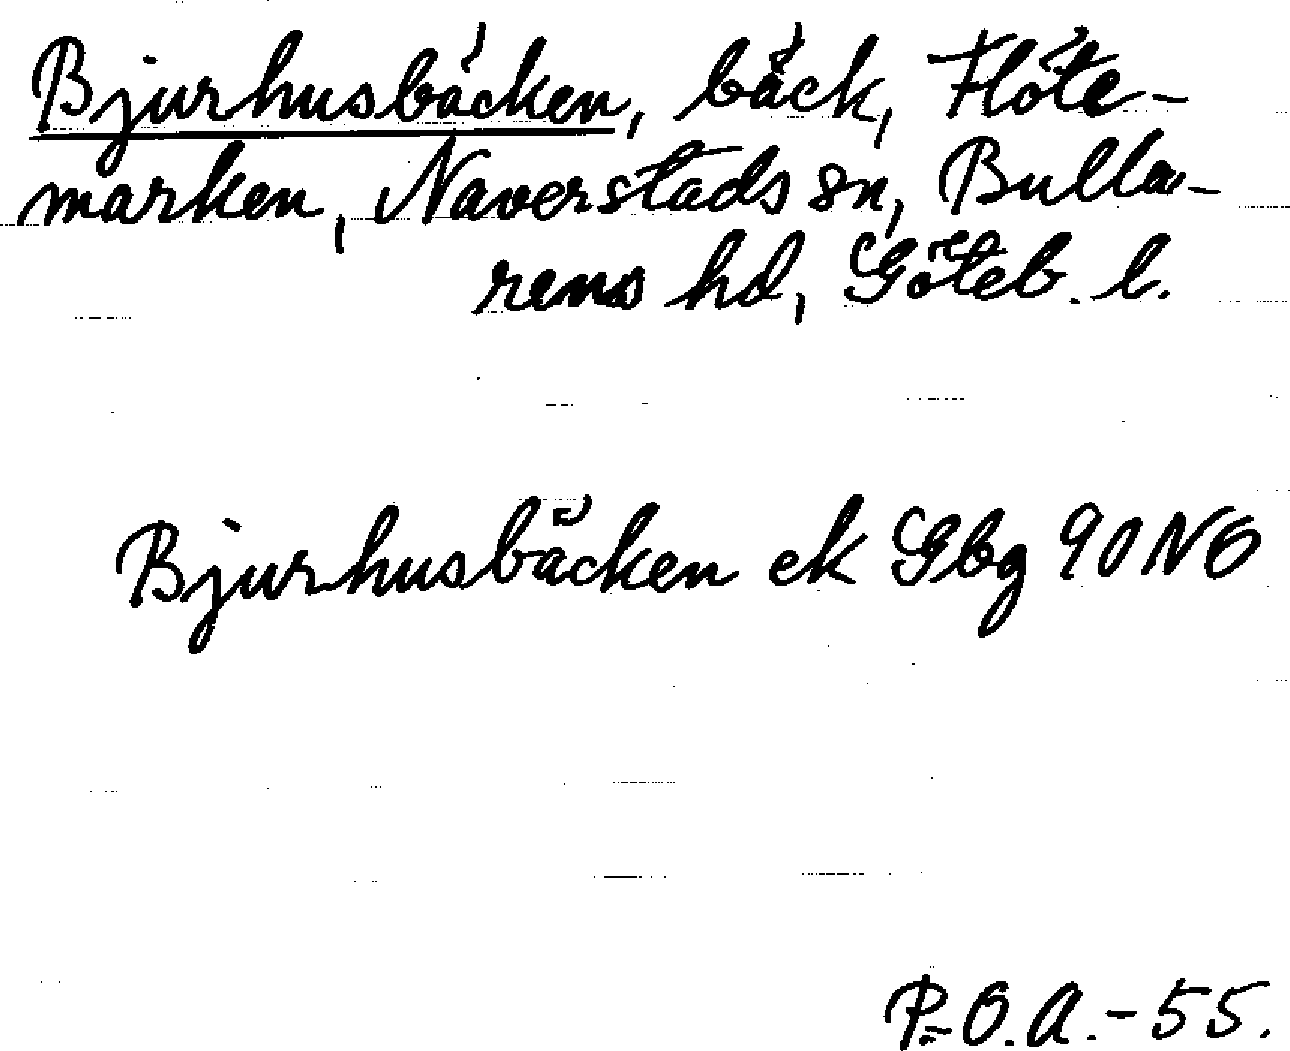 Bjurhusbäcken, bäck, Flöte-
marken, Naverstads sn, Bulla-
rens hd, Göteb. l.
Bjurhusbäcken ek Gbg 90 NO
P.O.A.-55.